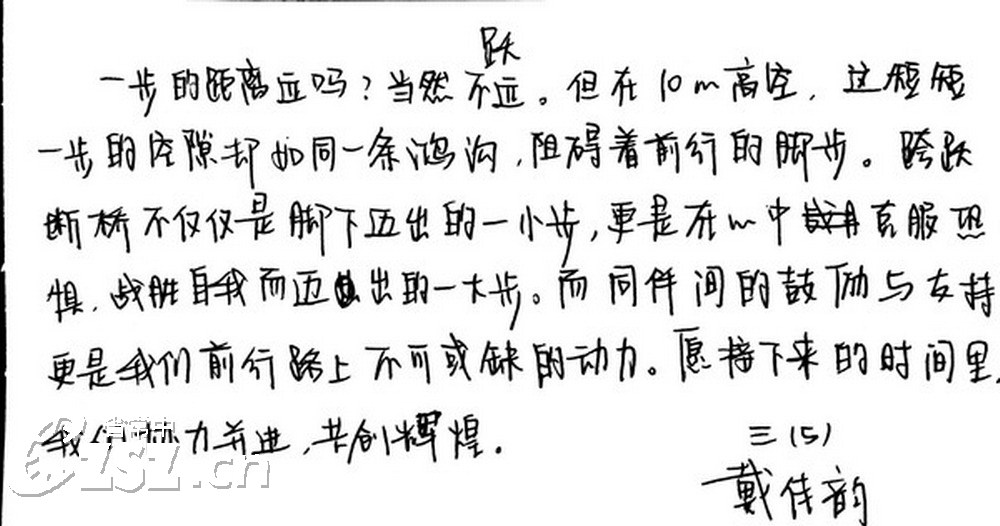 跃
一步的距离远吗？当然不远。但在10m高空，这短短
一步的空隙却如同一条鸿沟，阻碍着前行的脚步。跨跃
断桥不仅仅是脚下迈出的一小步，更是在心中克服恐
惧，战胜自我而迈出的一大步。而同伴间的鼓励与支持
更是我们前行路上不可或缺的动力。愿接下来的时间里，
我们协力并进，共创辉煌。
三（5）
戴佳韵